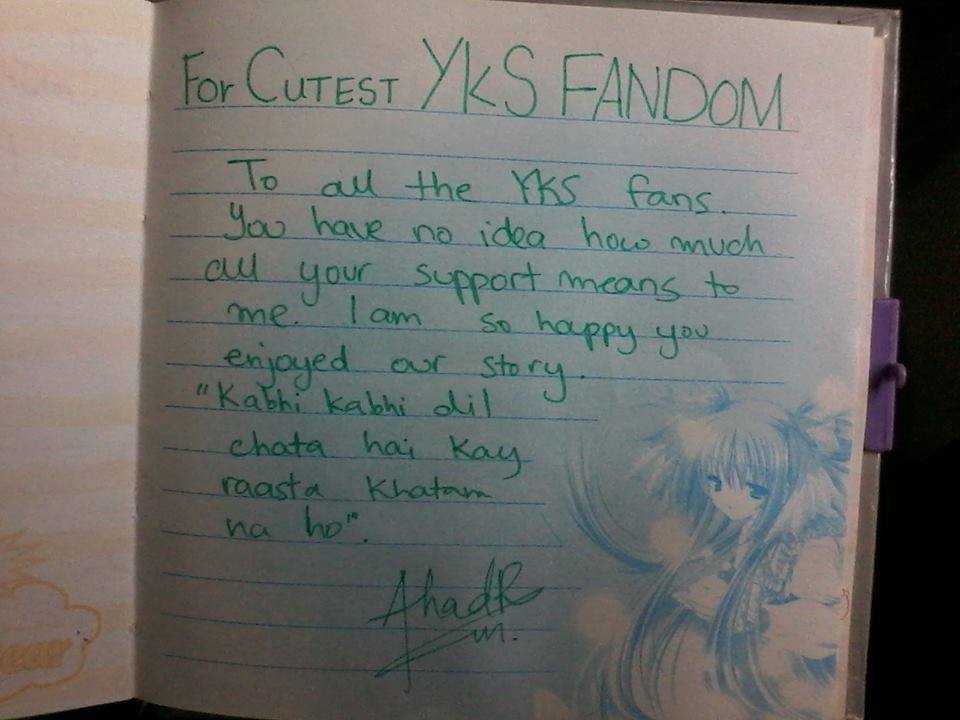 For CUTEST YKS FANDOM
To all the YKS fans.
You have no idea how much
all your support means to
me. I am so happy you
enjoyed our story.
"Kabhi kabhi dil
chata hai kay
raasta khatam
na ho".
AhadR